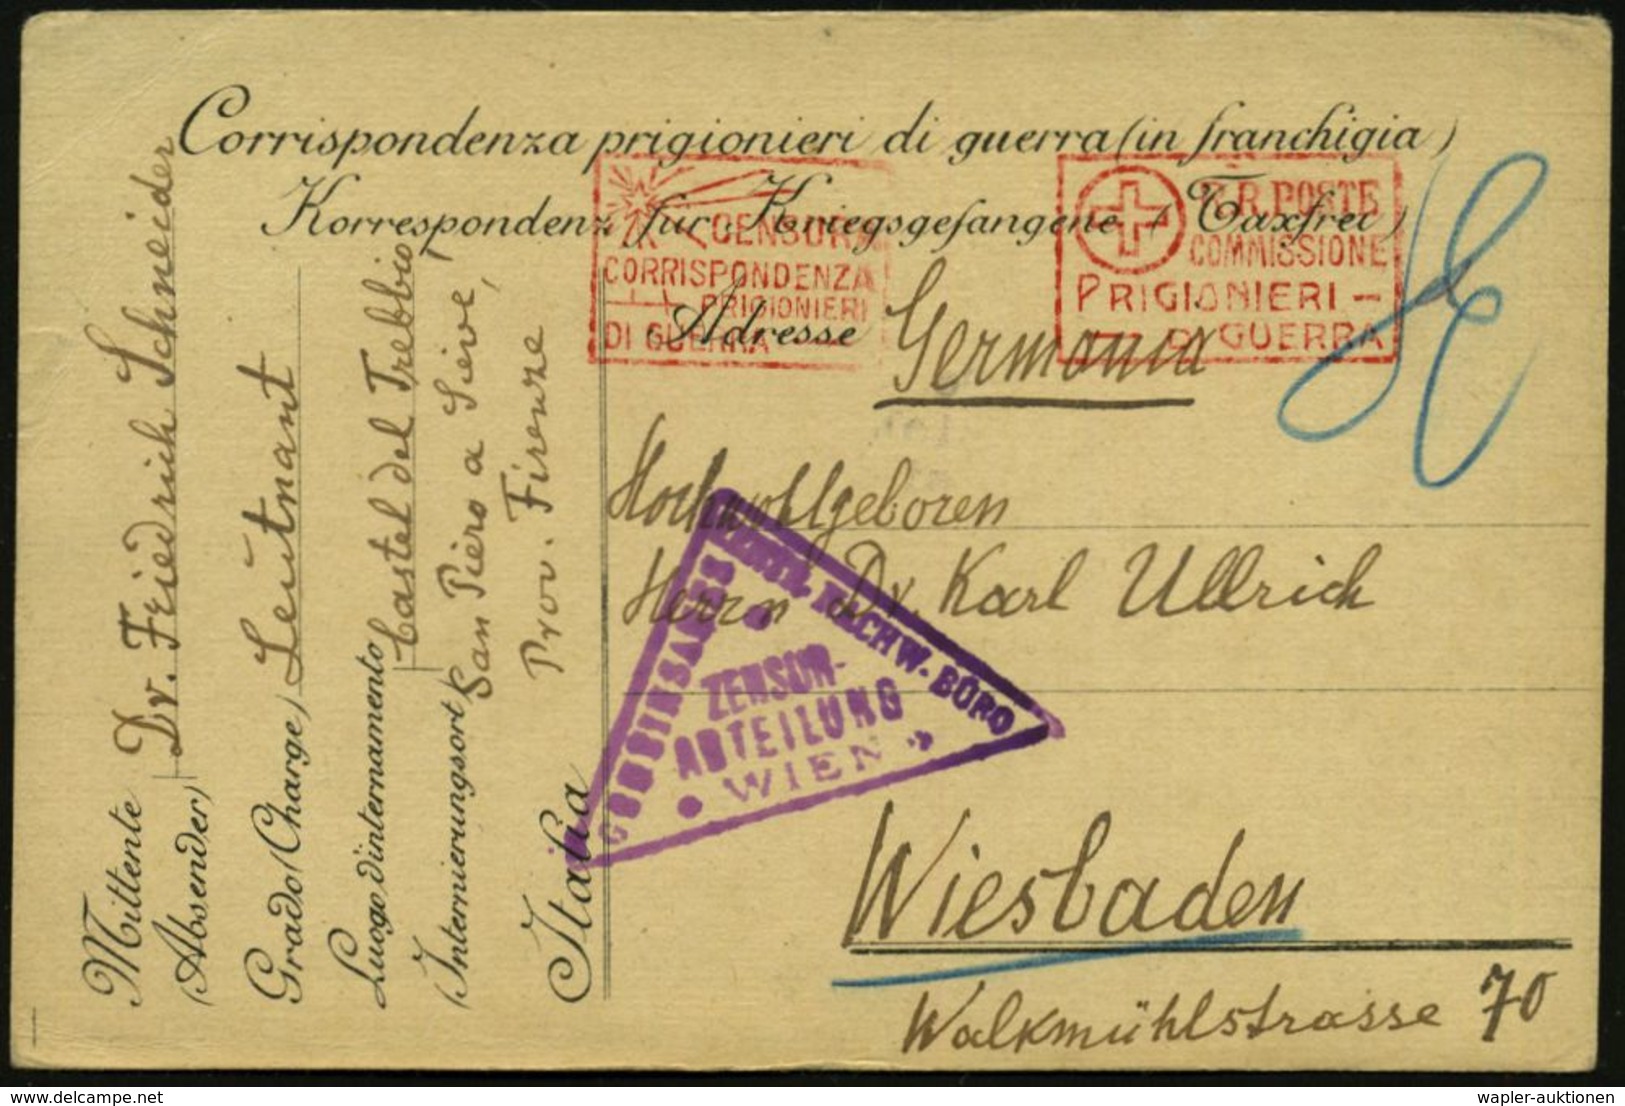 Corrispondenza prigionieri di guerra (in franchigia)
Korrespondenz für Kriegsgefangene (Taxfrei)
CENSURA
CORRISPONDENZA
PRIGIONIERI
DI GUERRA
R. POSTE
COMMISSIONE
PRIGIONIERI -
DI GUERRA
Adresse Germania
Hochwohlgeboren
Herrn Dr. Karl Ullrich
Wiesbaden
Walkmühlstrasse 70
GEMEINSAMES ZENTR. NACHW. BÜRO
ZENSUR-
ABTEILUNG
WIEN
Mittente Dr. Friedrich Schneider
(Absender)
Grado (Charge) Leutnant
Luogo d'internamento Castel del Trebbio,
(Internierungsort) San Piero a Sieve,
Prov. Firenze
Italia
wapler-auktionen
delcampe.net